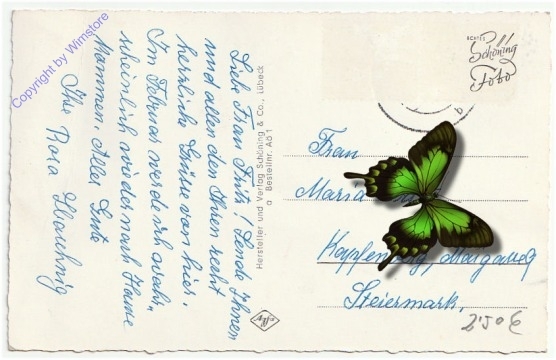 Copyright by Wimstore
Liebe Frau Fritz! Sende Ihnen
und allen den Ihren recht
herzliche Grüsse von hier.
Im Februar werde ich wahr-
scheinlich wieder nach Hause
kommen. Alles Gute
Ihre Rosa
Hersteller und Verlag Schöning & Co., Lübeck
a Bestellnr. Aö 1
Agfa
ECHTES
Schöning
Foto
Frau
Maria
Kapfenberg,
Steiermark.
2'50 €